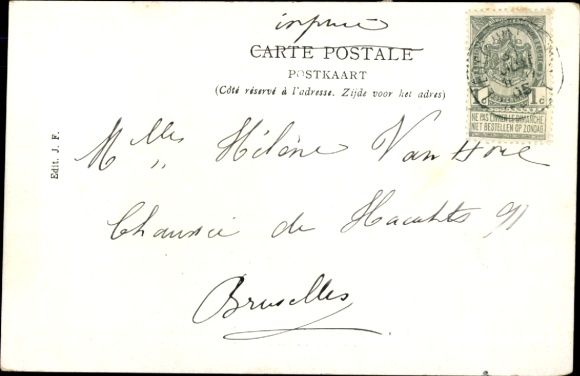 imprimé
CARTE POSTALE
POSTKAART
(Côté réservé à l'adresse. Zijde voor het adres)
1c 1c
NE PAS LIVRER LE DIMANCHE
NIET BESTELLEN OP ZONDAG
Edit. J. F.
Mlles Hélène Van
Chaussée de
Bruxelles